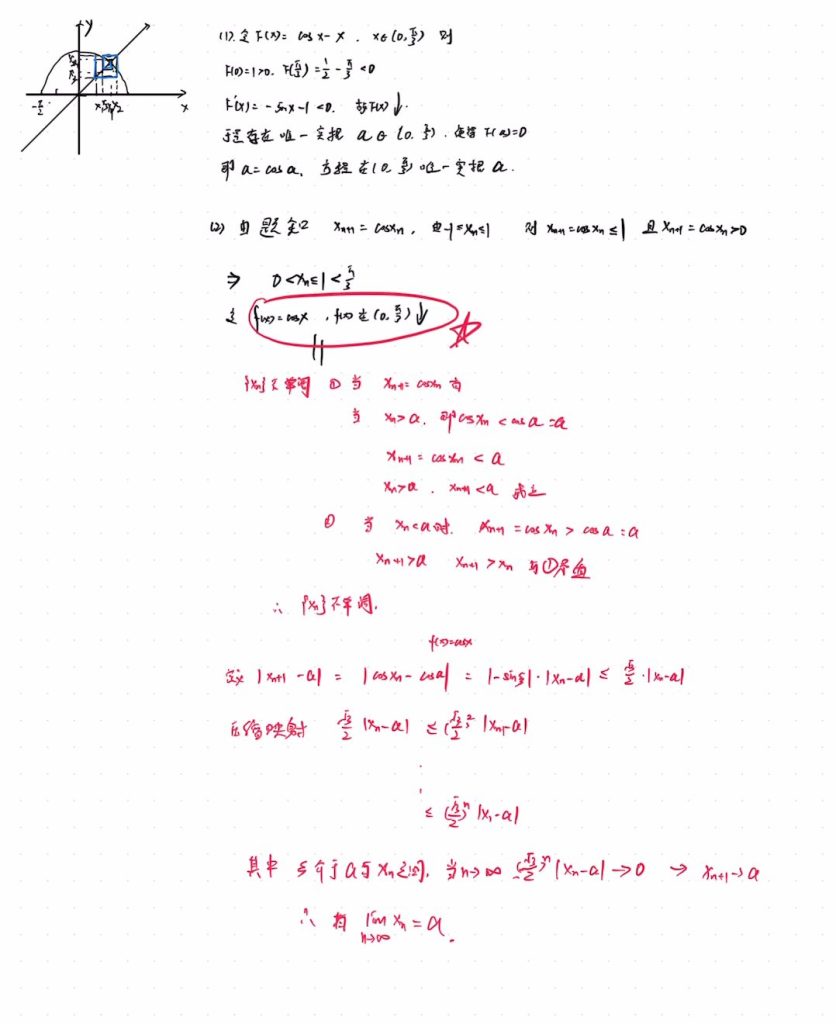 y
x
-π/2
(1). 令 F(x) = cos x - x . x∈(0, π/3) 则
F(0)=1>0. F(π/3) = 1/2 - π/3 <0
F'(x) = -sinx-1<0. 故F(x)↓.
于是存在唯一实根 a∈(0, π/3). 使得 F(a)=0
即 a=cos a. 方程在(0, π/3)唯一实根 a.
(2) 由题 xn+1 = cosxn , 由-1≤xn≤1 则 xn+1=cosxn≤1 且 xn+1=cosxn>0
⇒ 0<xn≤1<π/3
f(x)=cosx , f(x)在(0, π/3)↓
{xn}不单调 ① 当 xn+1 = cosxn
当 xn>a. 即cosxn < cosa=a
xn+1 = cosxn < a
xn>a . xn+1<a
当 xn<a时. xn+1 = cosxn > cosa = a
xn+1>a xn+1>xn 与①矛盾
∴ {xn}不单调.
f(x)=cosx
|xn+1 - a| = |cosxn - cosa| = |-sinξ|·|xn-a| ≤ √3/2 · |xn-a|
压缩映射 √3/2 |xn-a| ≤ (√3/2)² |xn-1-a|
≤ (√3/2)ⁿ |x1-a|
其中 ξ介于a与xn之间. 当n→∞ (√3/2)ⁿ |xn-a| →0 → xn+1→a
∴ 有 lim n→∞ xn = a.